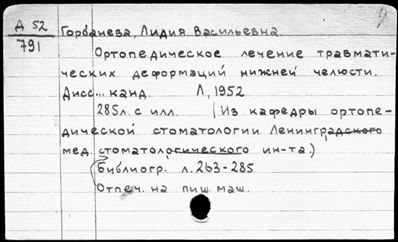 Д 52
791
Горбанева, Лидия Васильевна.
Ортопедическое лечение травмати-
ческих деформаций нижней челюсти.
Дисс... канд. Л, 1952
285л. с илл. (Из кафедры ортопе-
дической стоматологии Ленинградского
мед. стоматологического ин-та.)
Библиогр. л. 263-285
Отпеч. на пиш маш.